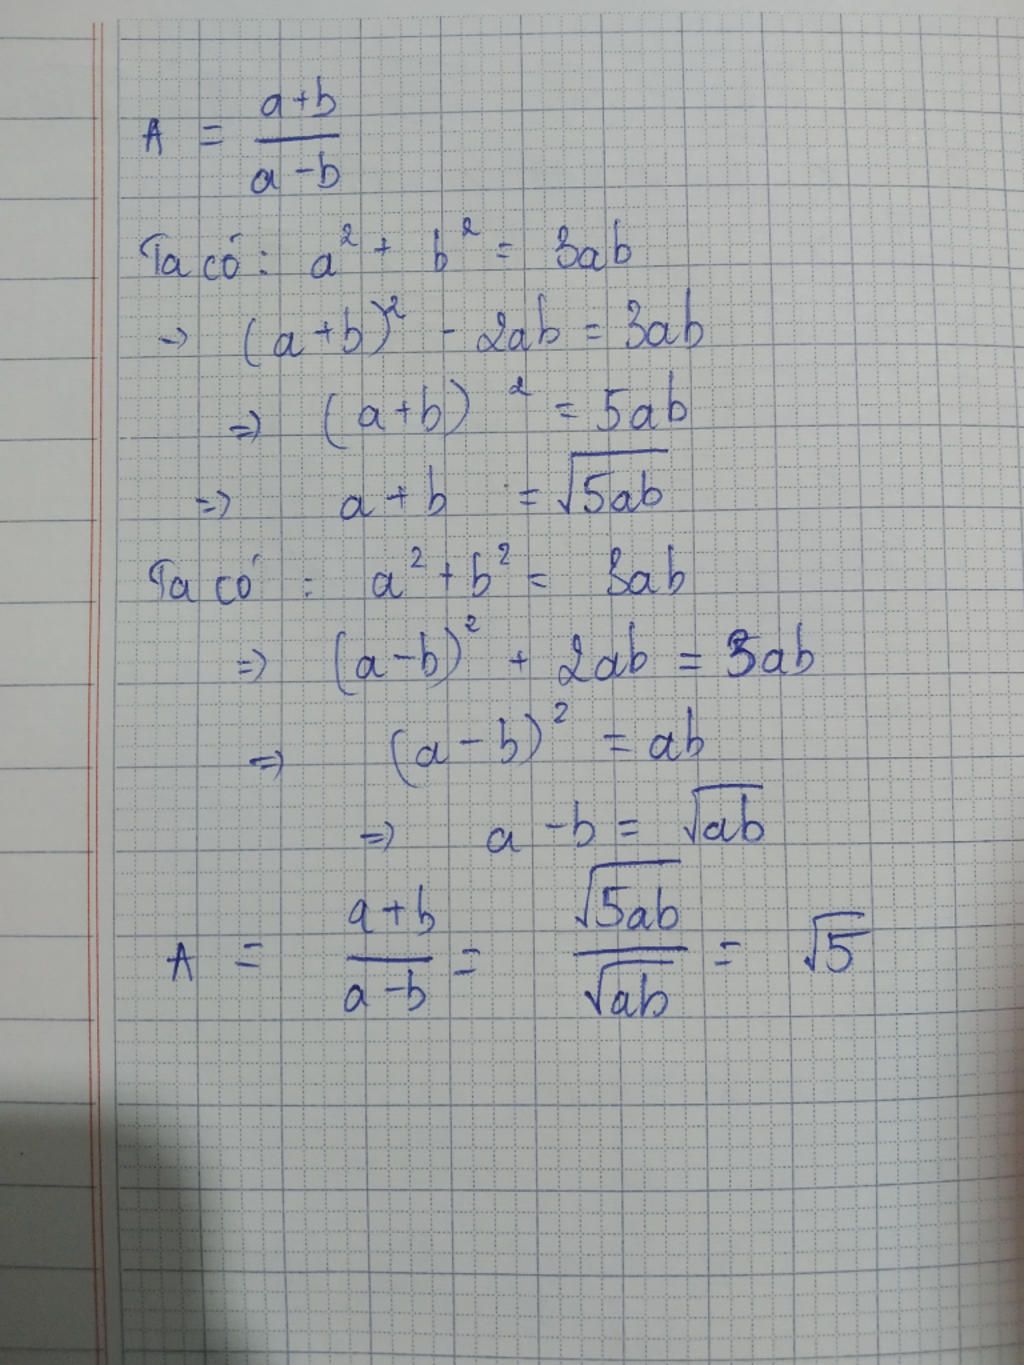 A = (a+b)/(a-b)
Ta có: a² + b² = 3ab
→ (a+b)² - 2ab = 3ab
⇒ (a+b)² = 5ab
⇒ a+b = √5ab
Ta có: a² + b² = 3ab
⇒ (a-b)² + 2ab = 3ab
⇒ (a-b)² = ab
⇒ a-b = √ab
A = (a+b)/(a-b) = √5ab/√ab = √5